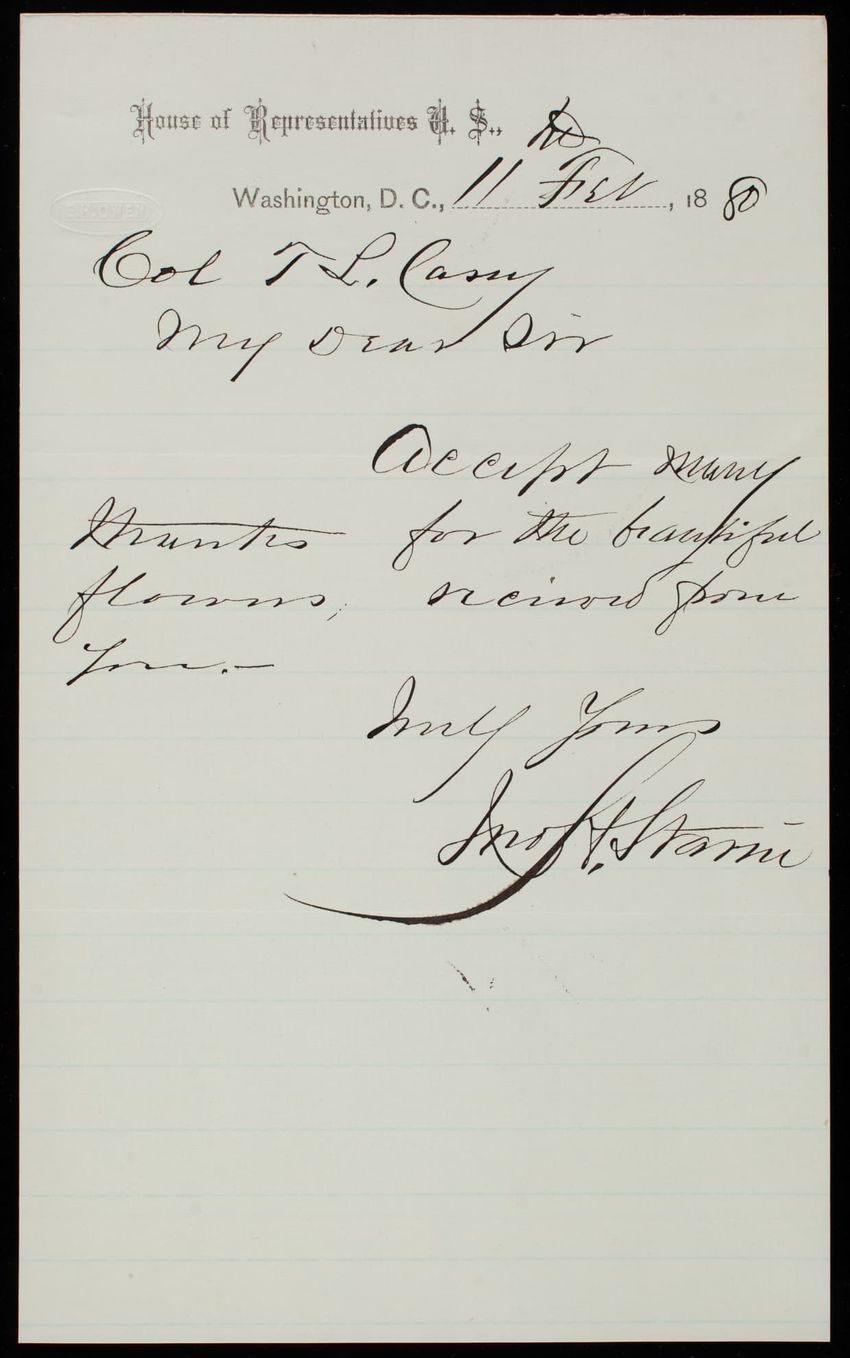 House of Representatives U. S.,
Washington, D. C., 11 Feb, 1880
Col T L. Casey
My Dear Sir
Accept many
thanks for the beautiful
flowers, received from
you.—
Truly Yours
Jno H. Starin